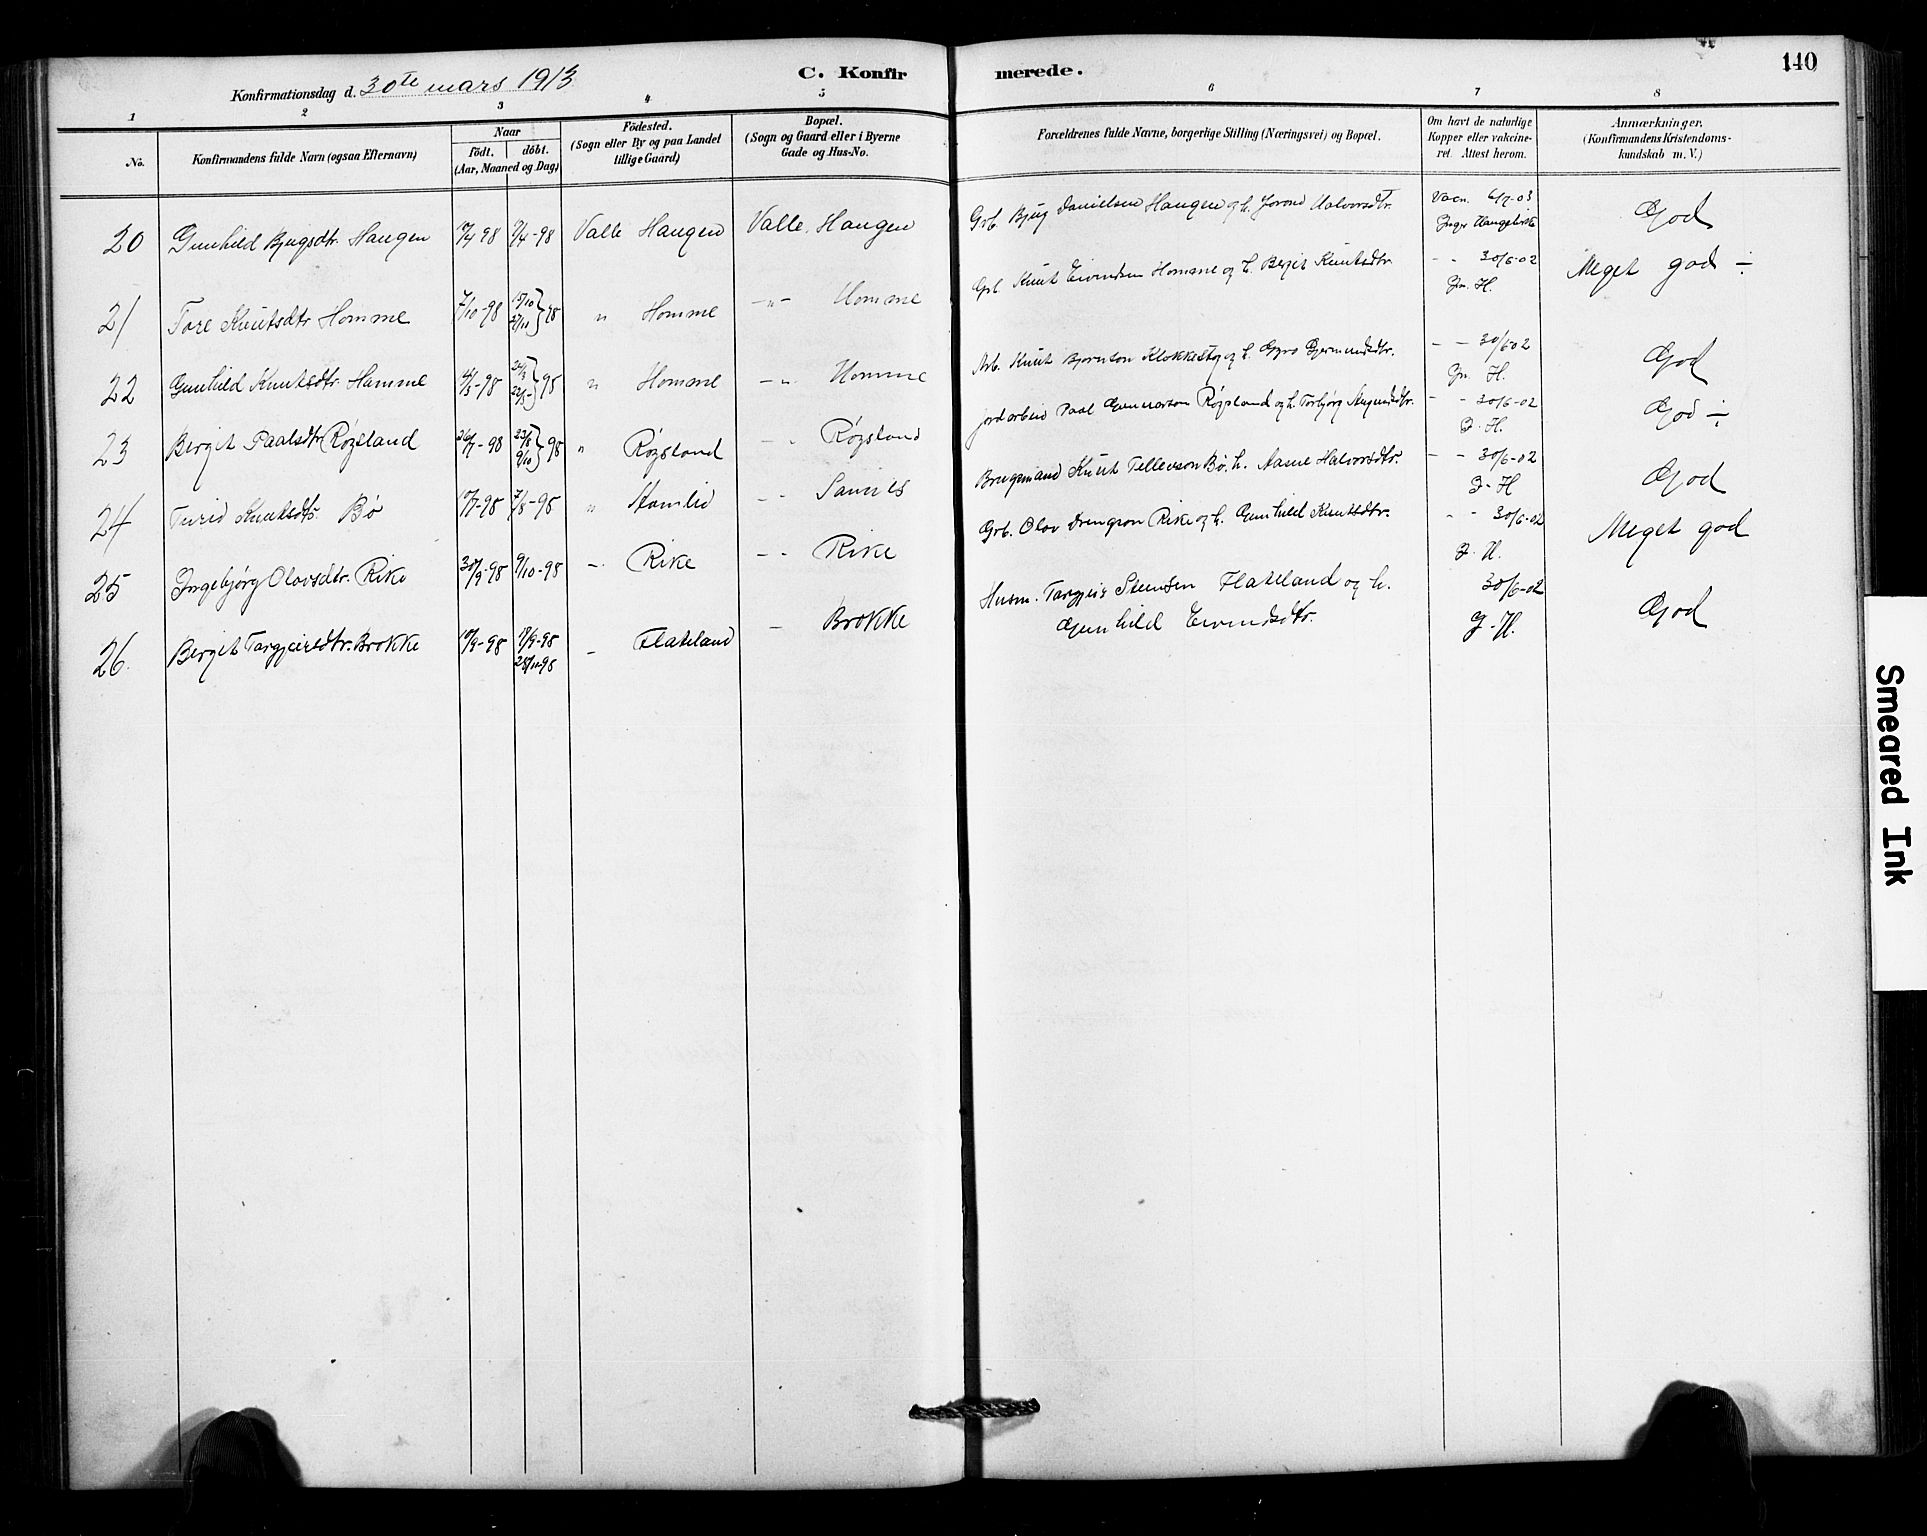 140
C. Konfirmerede.
Konfirmationsdag d. 30te mars 1913
1 2 3 4 5 6 7 8
No. Konfirmandens fulde Navn (ogsaa Efternavn) Naar födt. döbt. (Aar, Maaned og Dag) Födested. (Sogn eller By og paa Landet tillige Gaard) Bopæl. (Sogn og Gaard eller i Byerne Gade og Hus-No. Forældrenes fulde Navne, borgerlige Stilling (Næringsvei) og Bopæl. Om havt de naturlige Kopper eller vakcineret. Attest herom. Anmærkninger. (Konfirmandens Kristendomskundskab m. V.)
20 Gunhild Bjugsdtr. Haugen /4 98 /4-98 Valle Haugen Valle, Haugen Grb. Bjug Danielsen Haugen og h. Jorond Halvorsdtr. Vacn. 6/7-03 God
21 Tore Knutsdtr Homme 7/10-98 98 " Homme -"- Homme Grb. Knut Eivindsen Homme og h. Bergit Knutsdtr. - - 30/6-02 H. Meget god ÷
22 Gunhild Knutsdtr. Homme /3-98 98 " Homme -"- Homme Arb. Knut Bjornson Klokkestøg og h. Gyro Gjermundsdtr. - - 30/6 02 H. God
23 Bergit Paalsdtr Røgsland 26/7-98 98 " Røgsland - " Røgsland jordarbeid Paal Gunnarson Røgsland og h. Torbjørg Augundsdtr. - - 30/6-02 J. H. God ÷
24 Turid Knutsdtr. Bø 10/7-98 7/8-98 " Homlid - - Sannes Brugsmand Knut Tellevson Bø, h. Aasne Halvorsdtr. - - 30/6-02 J-H God
25 Ingebjørg Olovsdtr. Rike 30/9-98 9/10-98 -. Rike - - Rike Grb. Olov Drengson Rike og h. Gunhild Knutsdtr. - - 30/6-02 J. H. Meget god
26. Bergit Targjeirsdtr. Brokke 10/9-98 18/9-98 28/11-98 - Flateland - Brokke Husm. Targjeir Steinsen Flateland og h. Gunhild Eivindsdtr. 30/6-02 J-H. God
Smeared Ink